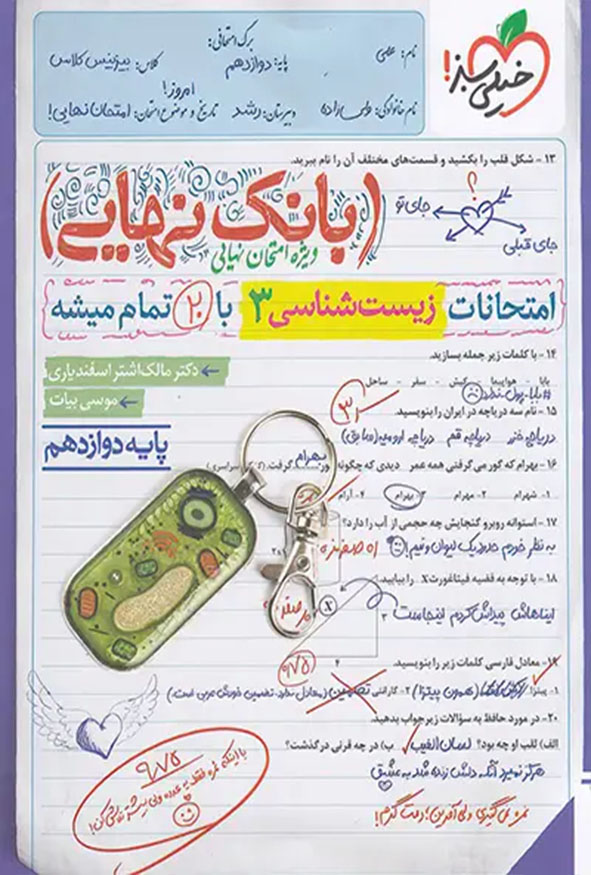 خیلی سبز!
برگ امتحانی:
نام: علمی
پایه: دوازدهم
کلاس: بیزینس کلاس
امروز!
نام خانوادگی: والی‌زاده
دبیرستان: رشد
تاریخ و موضوع امتحان: امتحان نهایی!
۱۳ - شکل قلب را بکشید و قسمت‌های مختلف آن را نام ببرید.
؟
جای تو
جای قبلی
(بانک نهایی)
ویژه امتحان نهایی
امتحانات زیست‌شناسی ۳ با ۲۰ تمام میشه
۱۴ - با کلمات زیر جمله بسازید.
بابا - هواپیما - کیش - سفر - ساحل
# بابا-پول-ندارد
دکتر مالک‌اشتر اسفندیاری
موسی بیات
۱۵ - نام سه دریاچه در ایران را بنویسید.
دریاچه خزر دریاچه قم دریاچه ارومیه (سابق)
پایه دوازدهم
۱۶ - بهرام که گور می‌گرفتی همه عمر دیدی که چگونه گور بهرام گرفت.
۱- شهرام ۲- مهرام ۳- بهرام ۴- آرام
۱۷ - استوانه روبرو گنجایش چه حجمی از آب را دارد؟
به نظر خودم حدود یک لیوان و نیم!
۱۸ - با توجه به قضیه فیثاغورث X را بیابید.
X
ایناهاش پیداش کردم اینجاست
۳
۴
۱۹ - معادل فارسی کلمات زیر را بنویسید.
۱- پیتزا: (همون پیتزا) ۲- گارانتی: تضمین (معادل ندارد. تضمین خودش عربی است.)
۲۰- در مورد حافظ به سؤالات زیر جواب بدهید.
الف) لقب او چه بود؟ لسان الغیب ب) در چه قرنی درگذشت؟
هرگز نمیرد آنکه دلش زنده شد به عشق
۹/۷۵
نمره نمی‌گیری ولی آفرین؛ دمت گرم!